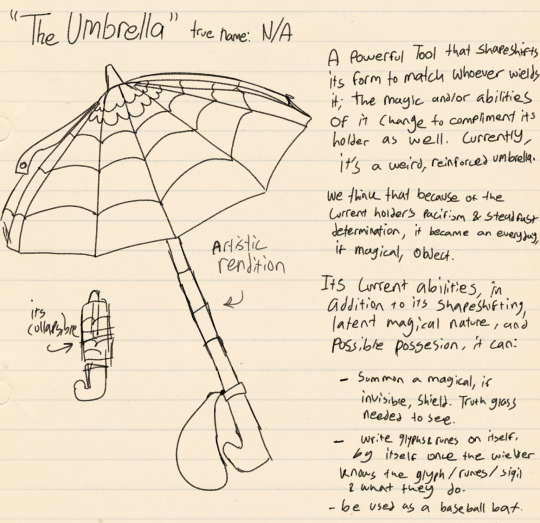 "The Umbrella" true name: N/A
A powerful Tool that shapeshifts
its form to match whoever wields
it; the magic and/or abilities
of it change to compliment its
holder as well. Currently,
it's a weird, reinforced umbrella.
we think that because of the
current holder's pacifism & steadfast
determination, it became an everyday,
if magical, object.
Artistic
rendition
its
collapsable
Its current abilities, in
addition to its shapeshifting,
latent magical nature, and
possible possesion, it can:
- Summon a magical, if
invisible, shield. Truth glass
needed to see.
- write glyphs & runes on itself,
by itself once the wielder
knows the glyph/runes/sigil
& what they do.
- be used as a baseball bat.